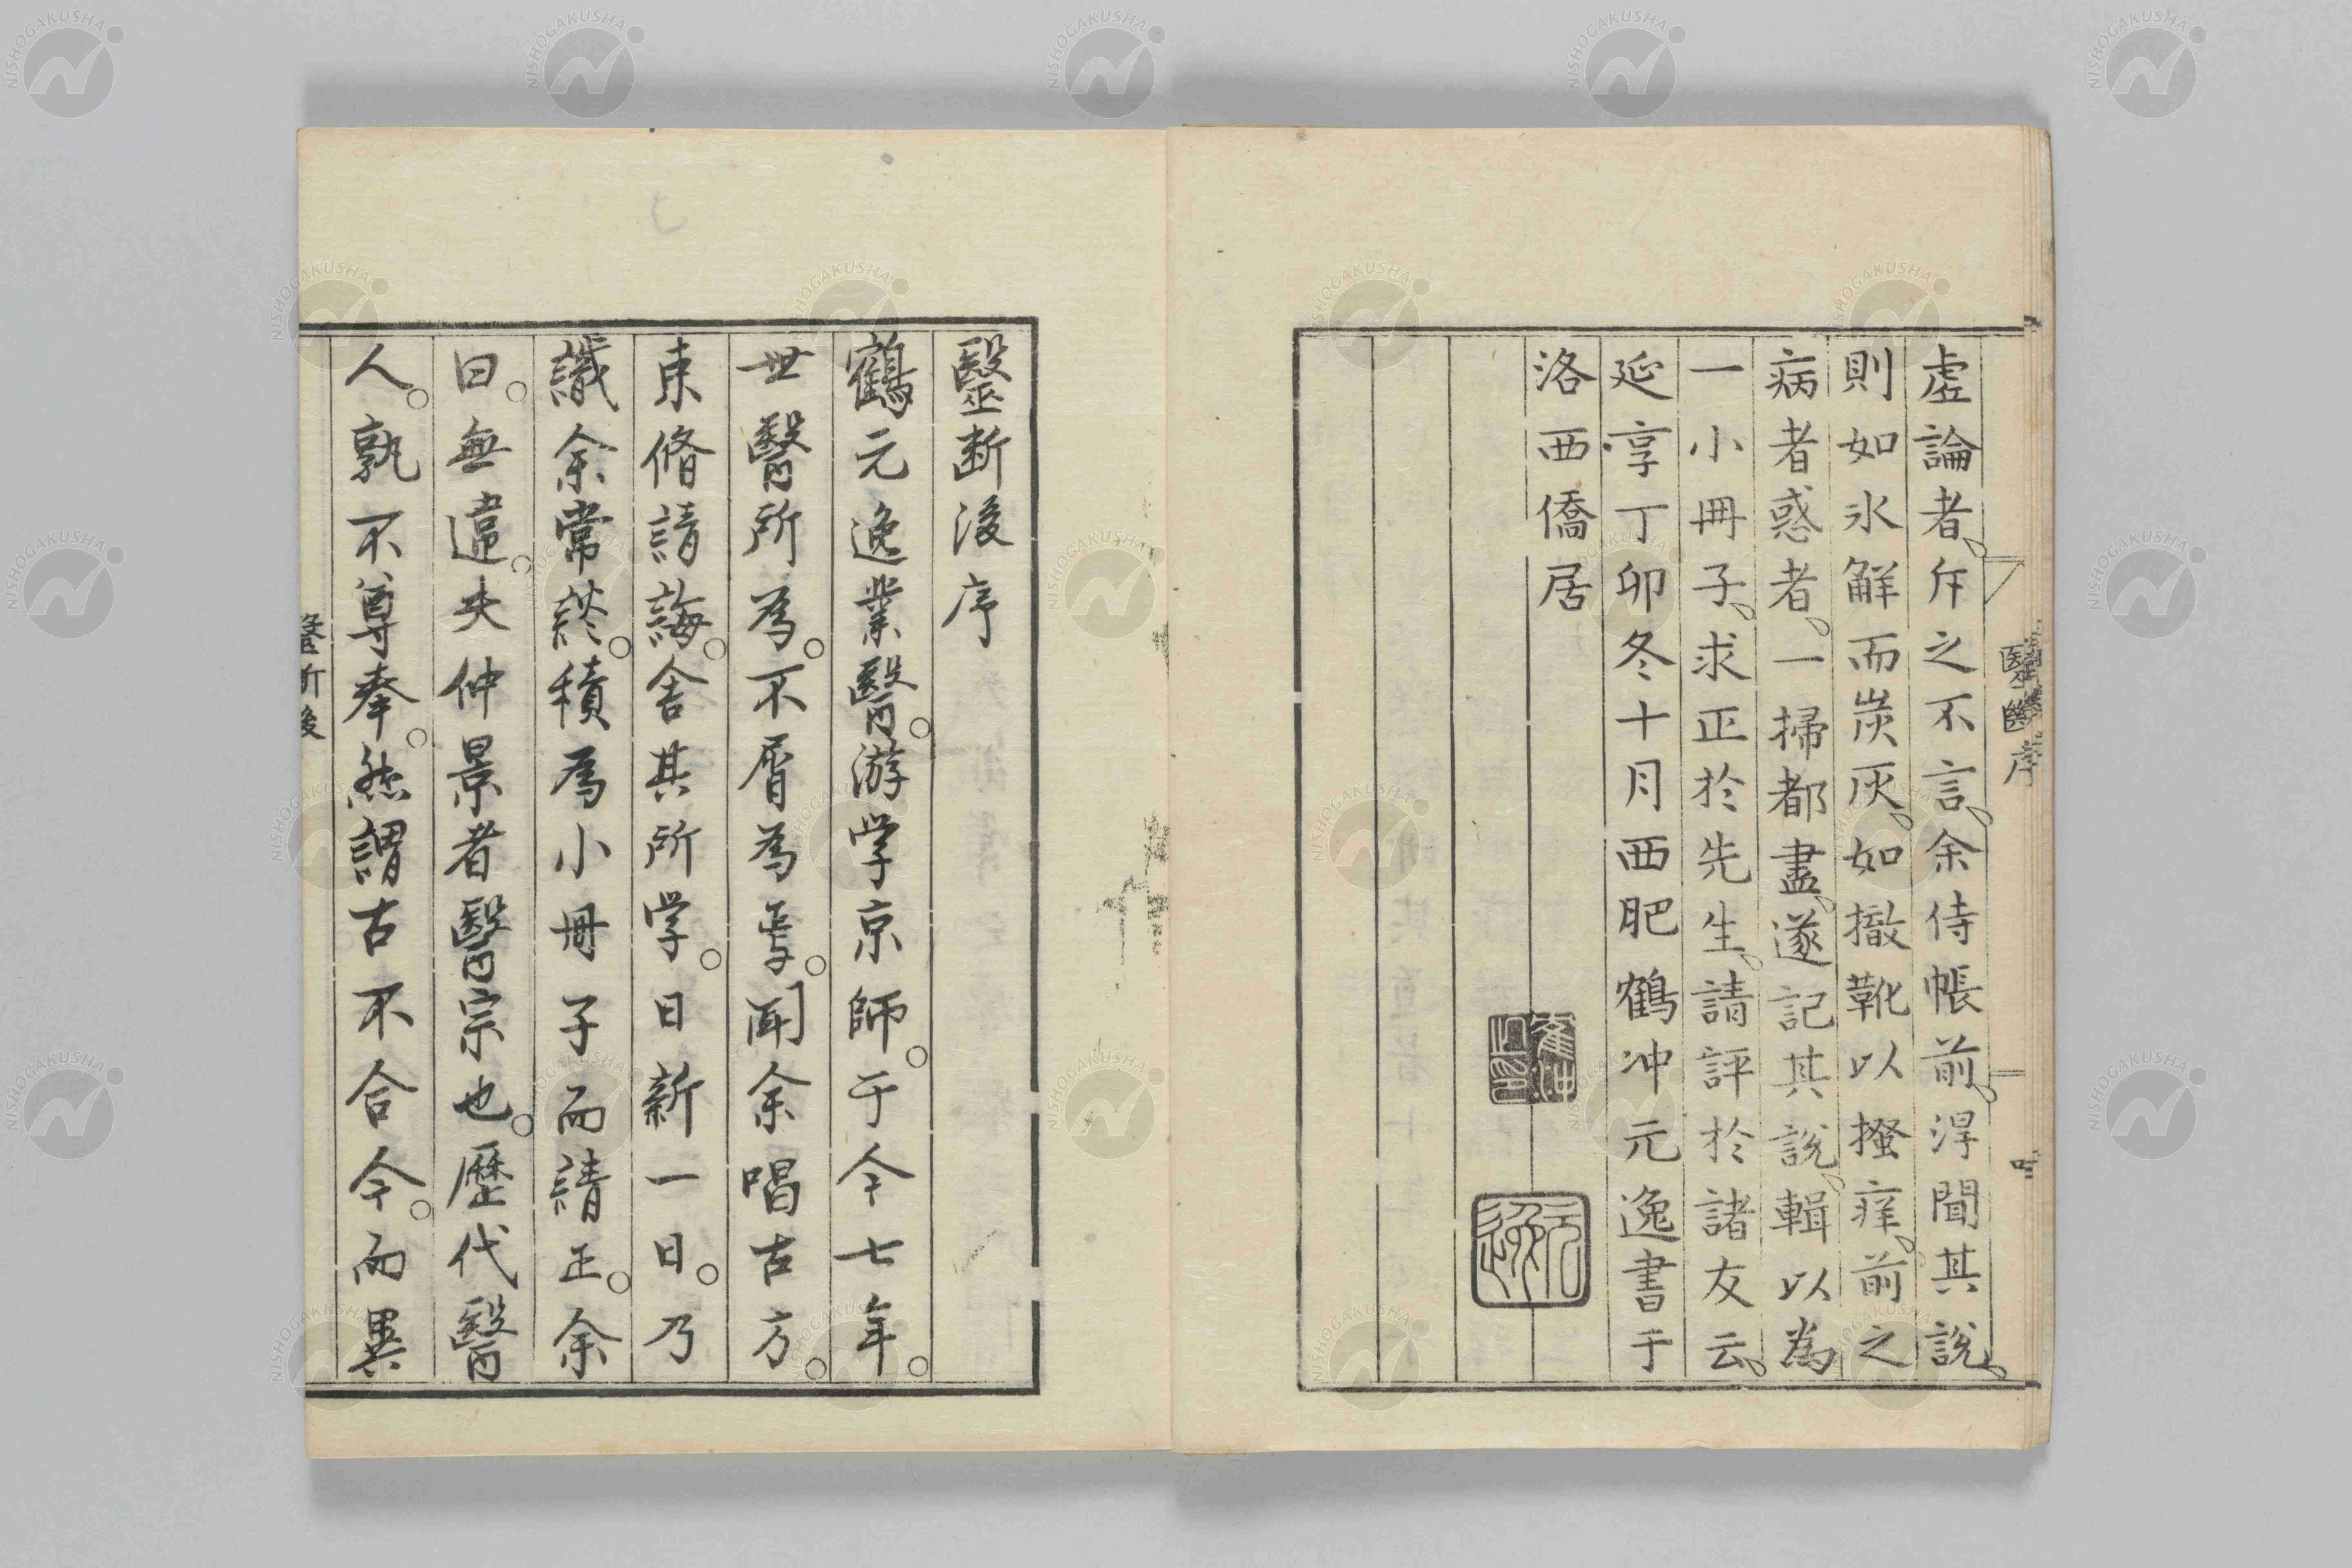 虛論者、斥之不言、余侍帳前、淂聞其說、
則如氷觧而炭灰、如撤靴以搔痒、前之
病者惑者、一掃都盡、遂記其說、輯以為
一小冊子、求正於先生、請評於諸友云、
延享丁卯冬十月西肥鶴冲元逸書于
洛西僑居
元逸
毉斷序
毉断後序
鶴元逸業醫。游学京師。于今七年。
世醫所為。不屑為焉。聞余唱古方。
束脩請誨。舍其所学。日新一日。乃
識余常談。積為小冊子而請正。余
曰。無違。夫仲景者醫宗也。歷代醫
人。孰不尊奉。然謂古不合今。而異
毉断後
NISHOGAKUSHA